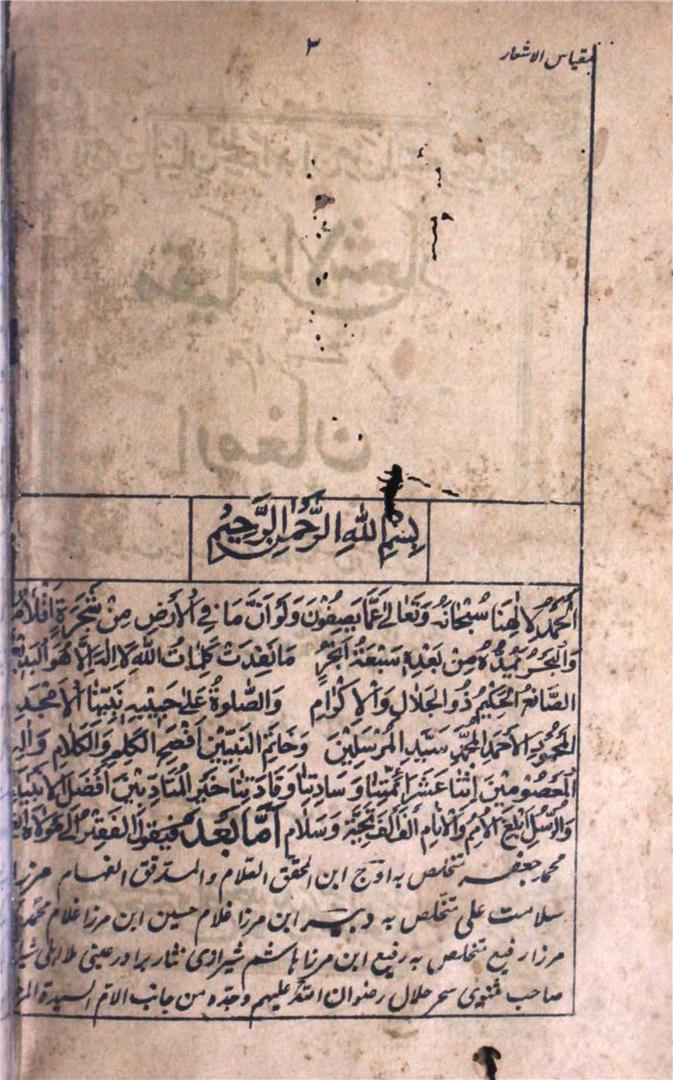 مقیاس الاشعار
۳
بِسْمِ اللهِ الرَّحْمٰنِ الرَّحِيْمِ
اَلْحَمْدُ لِاِلٰهِنَا سُبْحَانَهٗ وَتَعَالٰى عَمَّا يَصِفُوْنَ وَلَوْ اَنَّ مَا فِى الْاَرْضِ مِنْ شَجَرَةٍ اَقْلَامٌ
وَالْبَحْرُ يَمُدُّهٗ مِنْ بَعْدِهٖ سَبْعَةُ اَبْحُرٍ مَا نَفِدَتْ كَلِمَاتُ اللهِ لَا اِلٰهَ اِلَّا هُوَ الْبَدِيْعُ
الصَّانِعُ الْحَكِيْمُ ذُو الْجَلَالِ وَالْاِكْرَامِ وَالصَّلٰوةُ عَلٰى حَبِيْبِهٖ نَبِيِّنَا الْاَمْجَدِ
الْمَحْمُوْدِ الْاَحْمَدِ الْمُحَمَّدِ سَيِّدِ الْمُرْسَلِيْنَ وَخَاتَمِ النَّبِيِّيْنَ اَفْصَحِ الْكَلِمِ وَالْكَلَامِ وَاٰلِهِ
الْمَعْصُوْمِيْنَ اِثْنَا عَشَرَ اَئِمَّتِنَا وَسَادِتِنَا وَقَادَتِنَا خَيْرِ الْمُتَأَدِّبِيْنَ اَفْضَلِ الْاَنْبِيَاءِ
وَالرُّسُلِ اَبْلَغِ الْاُمَمِ وَالْاَنَامِ اَلْفَ اَلْفَ تَحِيَّةٍ وَسَلَامٍ اَمَّا بَعْدُ فَيَقُوْلُ الْفَقِيْرُ اِلٰى مَوْلَاهُ
محمد جعفر متخلص به اوج ابن المحقق العلام والمدقق الفهام مرزا
سلامت علی متخلص به دبیر ابن مرزا غلام حسین ابن مرزا غلام محمد
مرزا رفیع متخلص به رفیع ابن مرزا هاشم شیرازی نثار برادر عینی ملا اهلی
صاحب مثنوی سحر حلال رضوان الله علیهم وجده من جانب الام السیدة